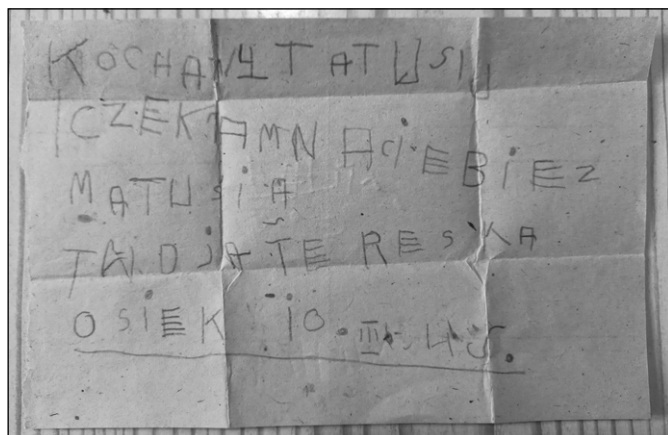 KOCHANY TATUSIU
CZEKAMN ACIEBIEZ
MATUSIA
TWOJATERESKA
OSIEK 10.III.45.